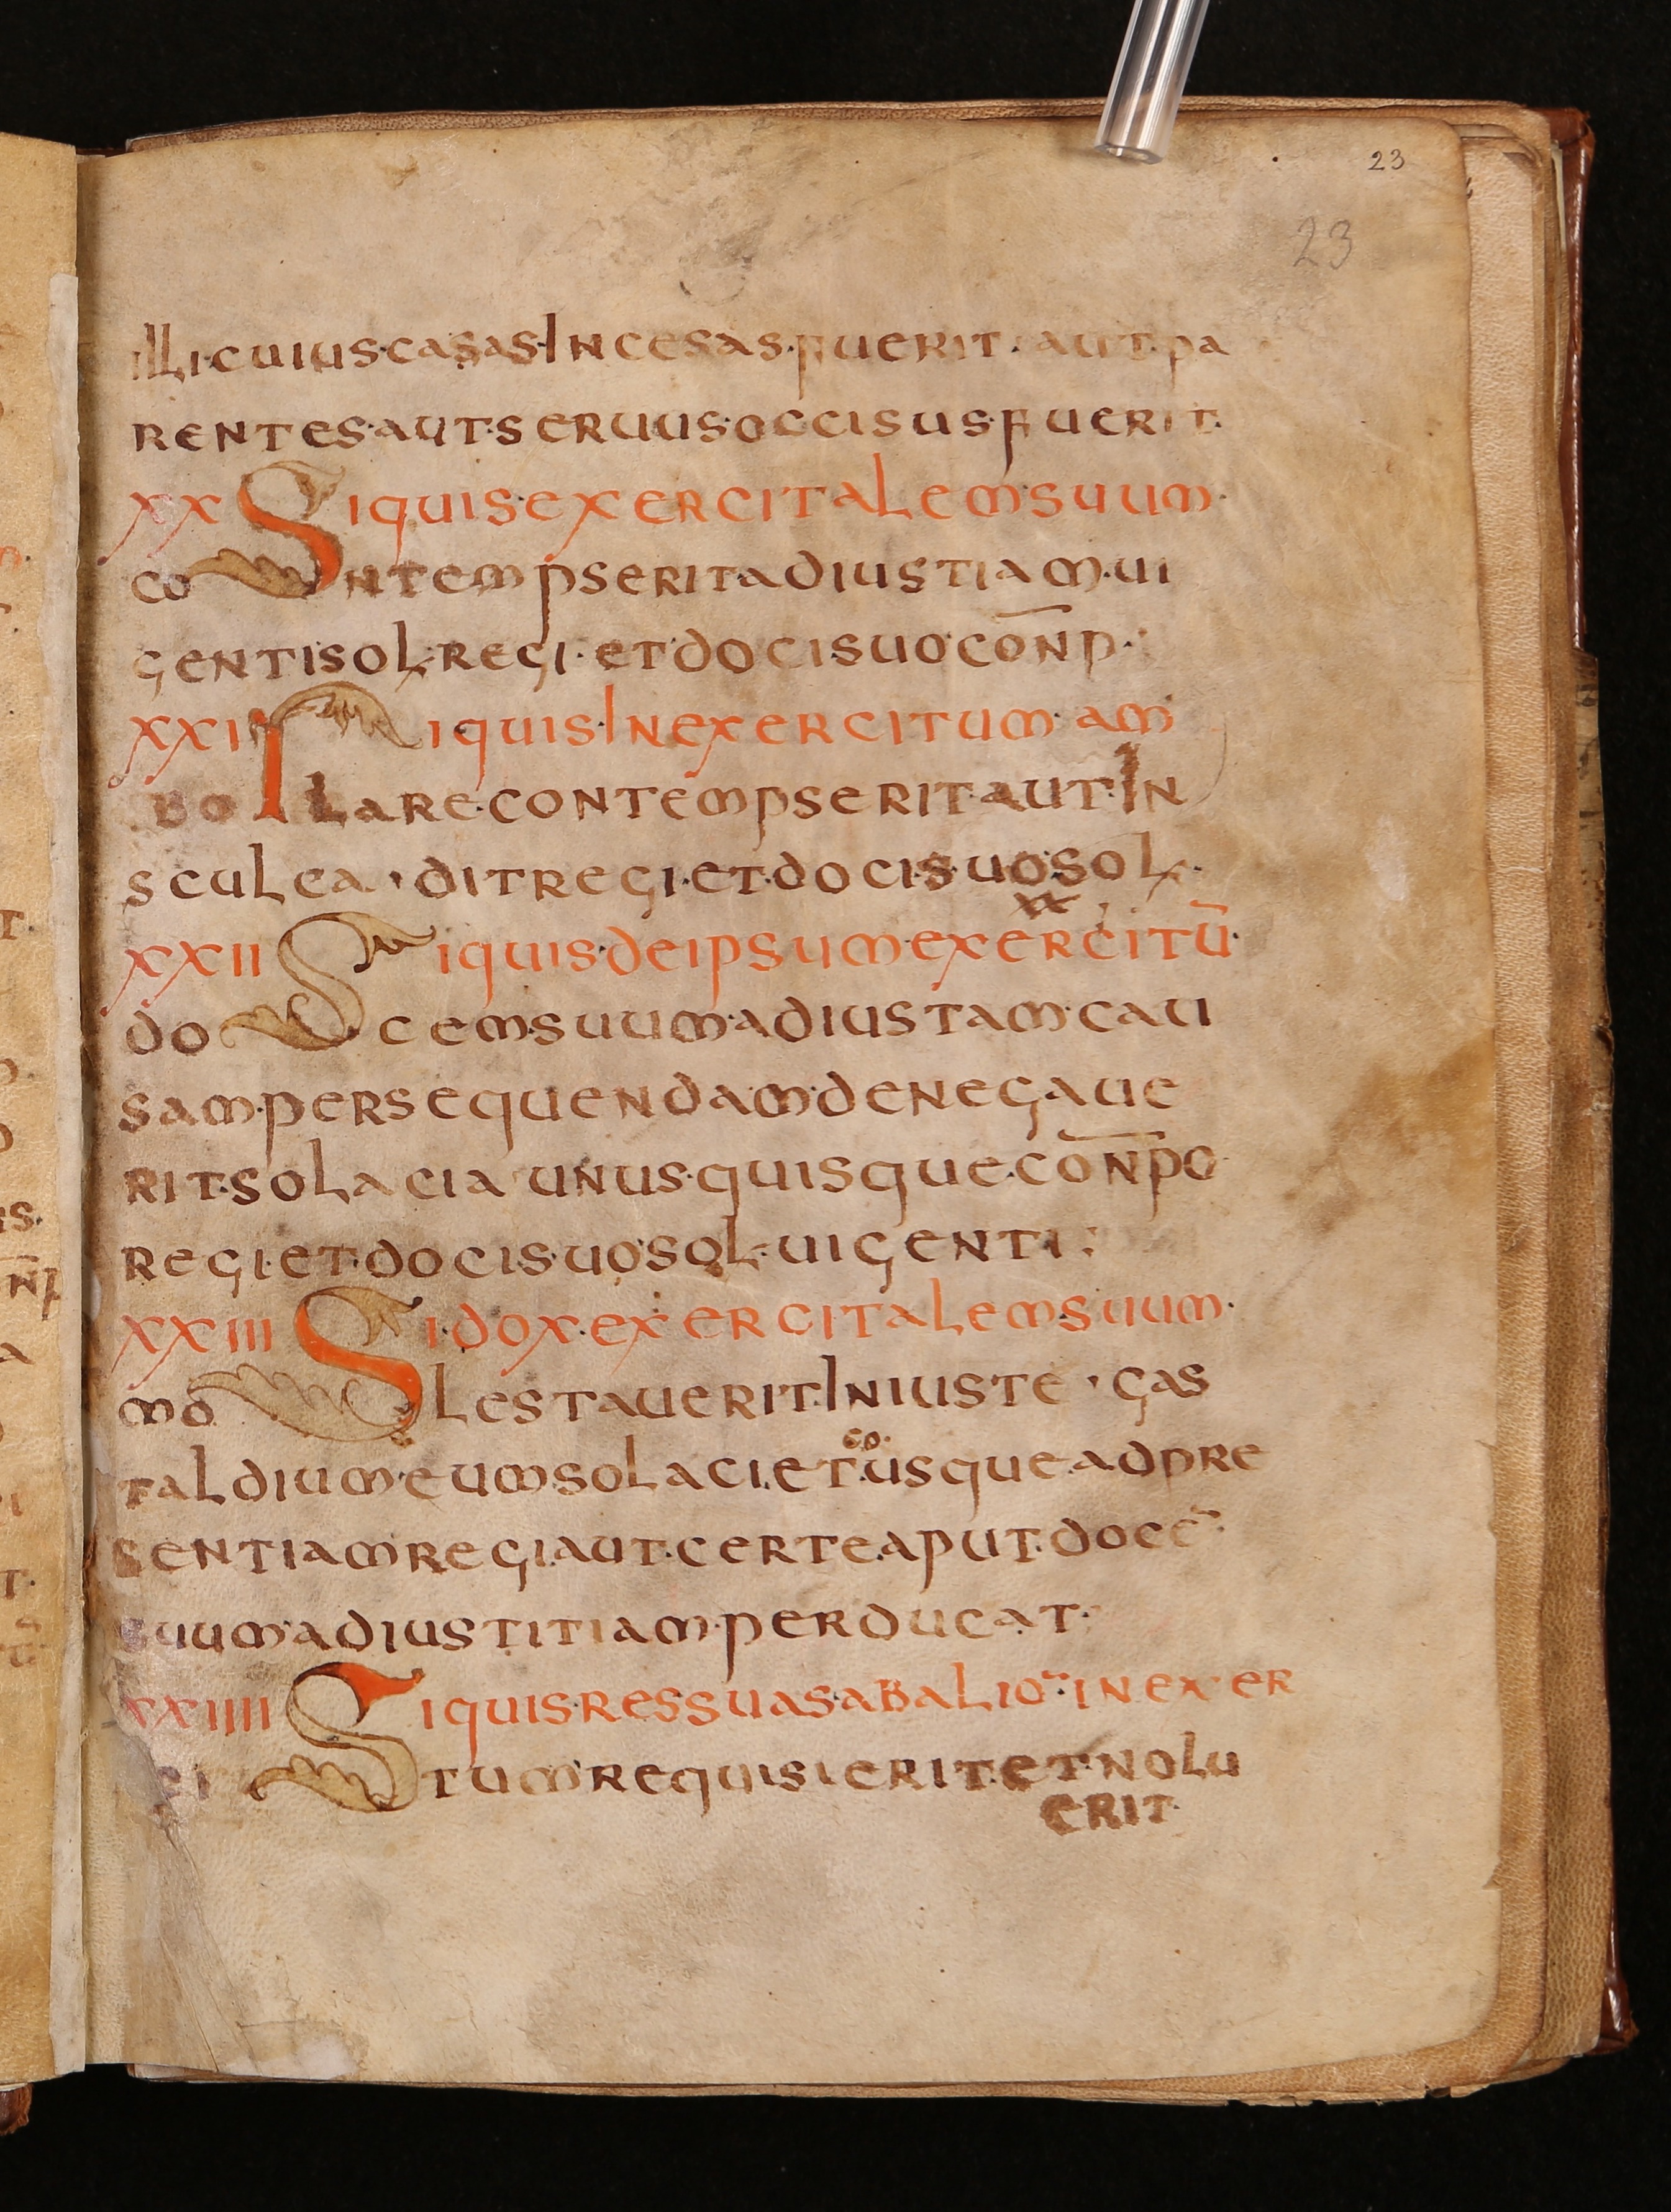 23
23
illi·cuius·casas·Incesas·fuerit·aut·pa
rentes·aut·seruus·occisus·fuerit·
xx Si quis·exercitalem·suum·
contempserit·adiustiam·ui
genti·sol·regi·et·doci·suo·con̅p·
xxi Si quis·Inexercitum·am
bollare·contempserit·aut·In
sculca·dit regi·et·doci·suo·sol·
xx
xxii Si quis·deipsum·exercitū·
docem·suum·adiustam·cau
sam·persequendam·denegaue
rit·solacia unus·quisque·con̅po
regi·et·doci·suo·sol·uigenti:
xxiii Si·dox·exercitalem·suum·
molestauerit·Iniuste·gas
eo·
taldium·eum·solaciet·usque·adpre
sentiam·regi·aut·certe·aput·docē·
suum·adiustitiam·perducat·
xxiiii Si quis·res·suas·ab aliō·in exer
citum·requisierit·et·nolu
erit·